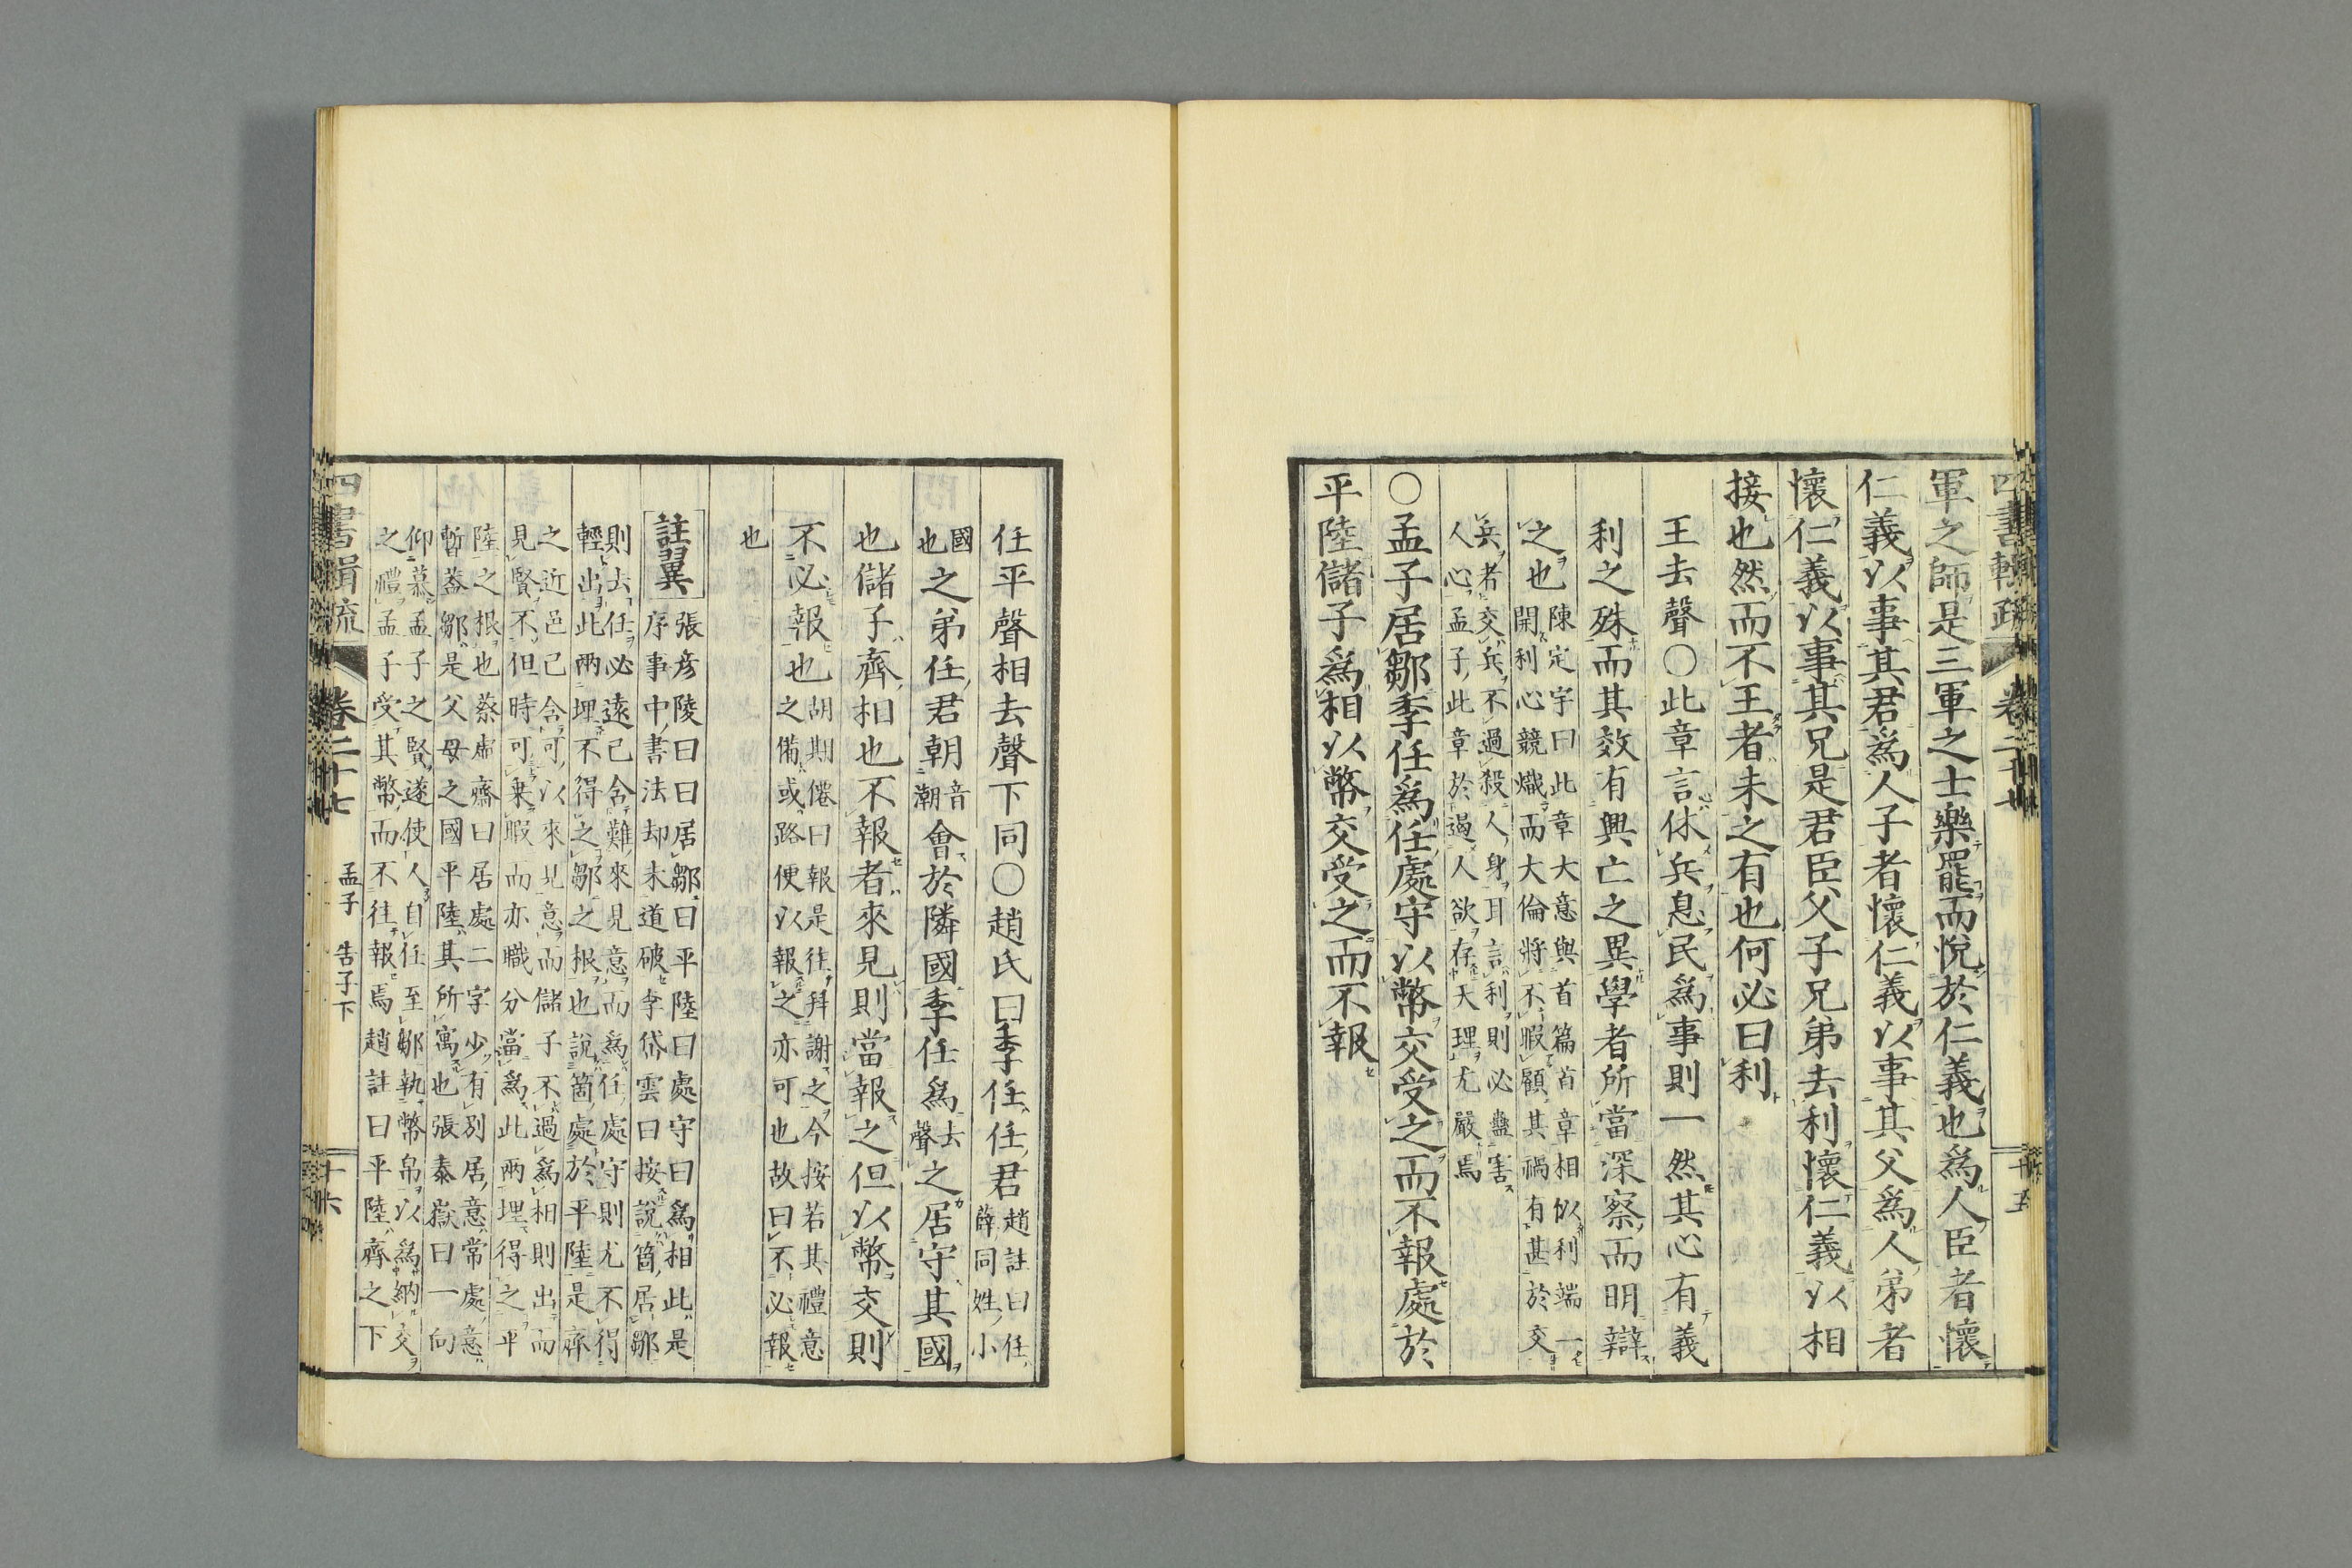 軍之師是三軍之士樂罷而悅於仁義也爲人臣者懷
仁義以事其君爲人子者懷仁義以事其父爲人弟者
懷仁義以事其兄是君臣父子兄弟去利懷仁義以相
接也然而不王者未之有也何必曰利
王去聲○此章言休兵息民爲事則一然其心有義
利之殊而其效有興亡之異學者所當深察而明辯
之也
陳定宇曰此章大意與首篇首章相似利端一
開利心競熾而大倫將不暇顧其禍有甚於交
兵者交兵不過殺人身耳言利則必蠱害
人心孟子此章於遏人欲存天理尤嚴焉
○孟子居鄒季任爲任處守以幣交受之而不報處於
平陸儲子爲相以幣交受之而不報
任平聲相去聲下同○趙氏曰季任任君
趙註曰任
薛同姓小
國
也
之弟任君朝
音
潮
會於隣國季任爲
去
聲
之居守其國
也儲子齊相也不報者來見則當報之但以幣交則
不必報也
胡期僊曰報是往拜謝之今按若其禮意
之備或路便以報之亦可也故曰不必報
也
註翼
張彥陵曰曰居鄒曰平陸曰處守曰爲相此是
序事中書法却未道破李岱雲曰按說箇居鄒
則去任必遠已含難來見意而爲任處守則尤不得
輕出此兩埋不得之鄒之根也說箇處於平陸是齊
之近邑已含可以來見意而儲子不過爲相則出而
見賢不但時可乗暇而亦職分當爲此兩埋得之平
陸之根也蔡虛齋曰居處二字少有別居意常處意
暫葢鄒是父母之國平陸其所寓也張泰嶽曰一向
仰慕孟子之賢遂使人自任至鄒執幣帛以爲納交
之禮孟子受其幣而不往報焉趙註曰平陸齊之下
四書輯疏
卷二十七
孟子
告子下
十六